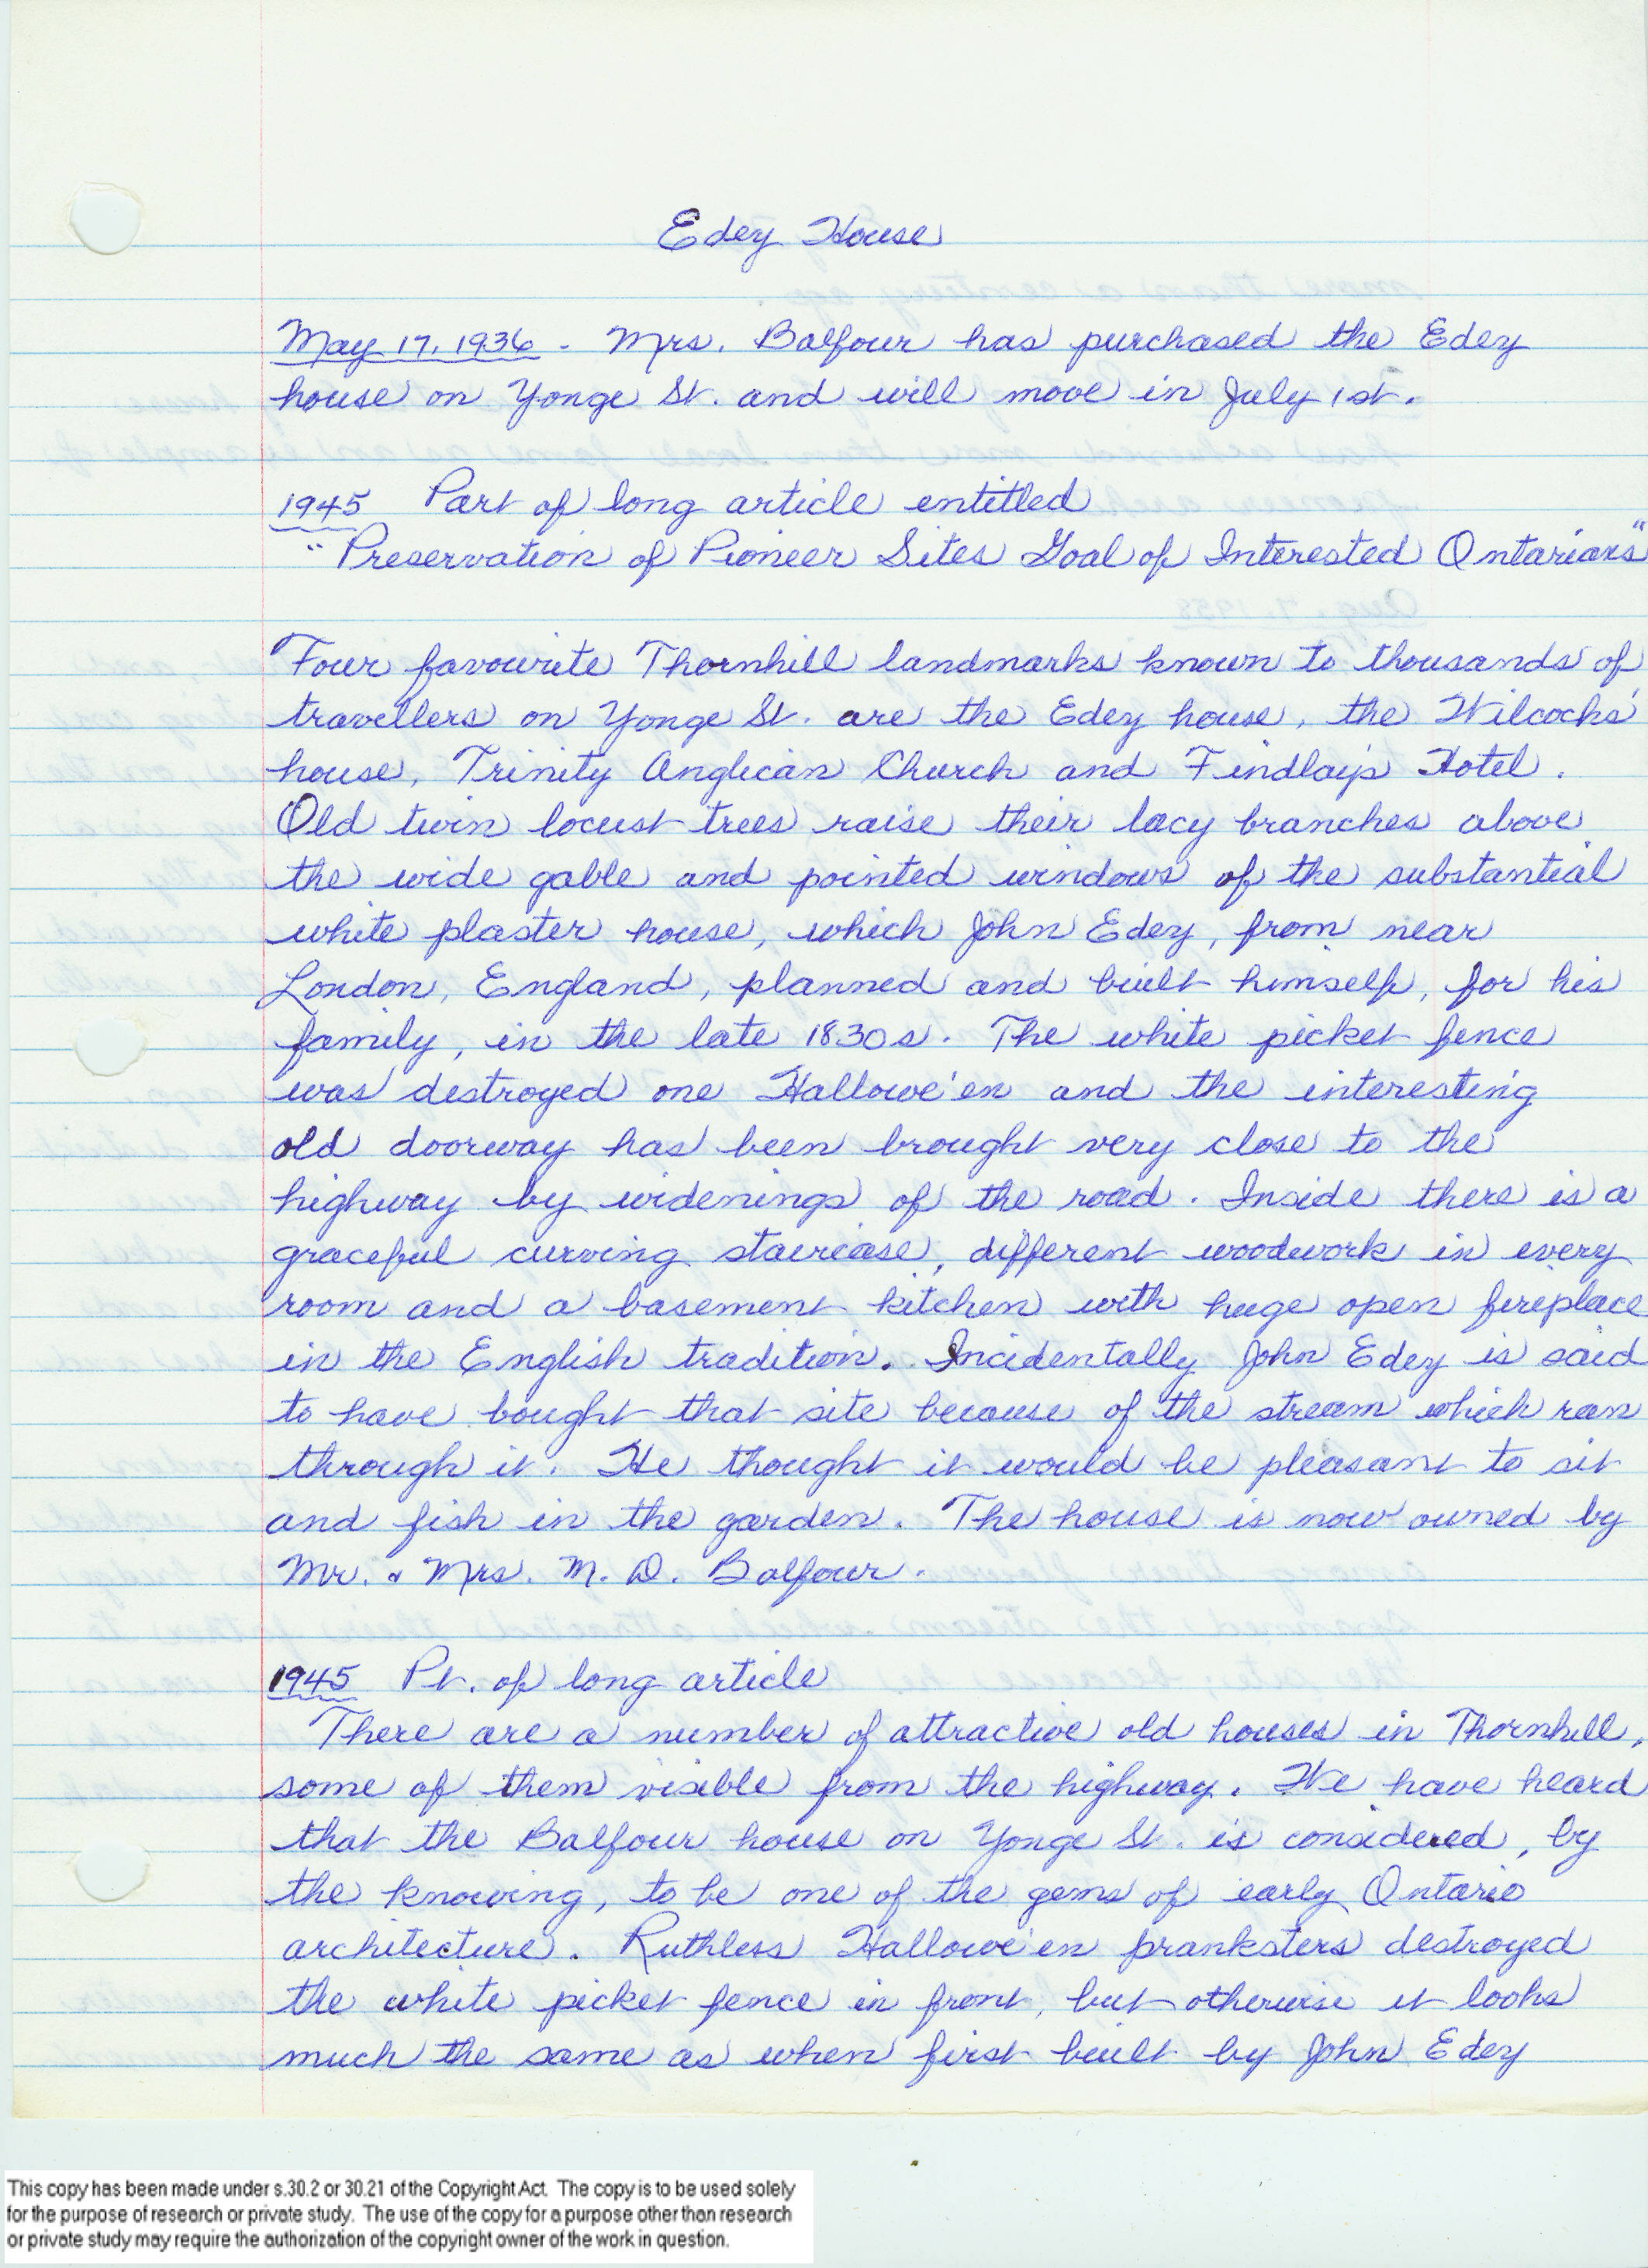 Edey House
May 17, 1936 - Mrs. Balfour has purchased the Edey
house on Yonge St. and will move in July 1st.
1945 Part of long article entitled
"Preservation of Pioneer Sites Goal of Interested Ontarians"
Four favourite Thornhill landmarks known to thousands of
travellers on Yonge St. are the Edey house, the Wilcocks'
house, Trinity Anglican Church and Findlay's Hotel.
Old twin locust trees raise their lacy branches above
the wide gable and pointed windows of the substantial
white plaster house, which John Edey, from near
London, England, planned and built himself, for his
family, in the late 1830s. The white picket fence
was destroyed one Hallowe'en and the interesting
old doorway has been brought very close to the
highway by widenings of the road. Inside there is a
graceful curving staircase, different woodwork in every
room and a basement kitchen with huge open fireplace
in the English tradition. Incidentally John Edey is said
to have bought that site because of the stream which ran
through it. He thought it would be pleasant to sit
and fish in the garden. The house is now owned by
Mr. & Mrs. M. D. Balfour.
1945 Pt. of long article
There are a number of attractive old houses in Thornhill,
some of them visible from the highway. We have heard
that the Balfour house on Yonge St. is considered, by
the knowing, to be one of the gems of early Ontario
architecture. Ruthless Hallowe'en pranksters destroyed
the white picket fence in front, but otherwise it looks
much the same as when first built by John Edey
This copy has been made under s.30.2 or 30.21 of the Copyright Act. The copy is to be used solely
for the purpose of research or private study. The use of the copy for a purpose other than research
or private study may require the authorization of the copyright owner of the work in question.